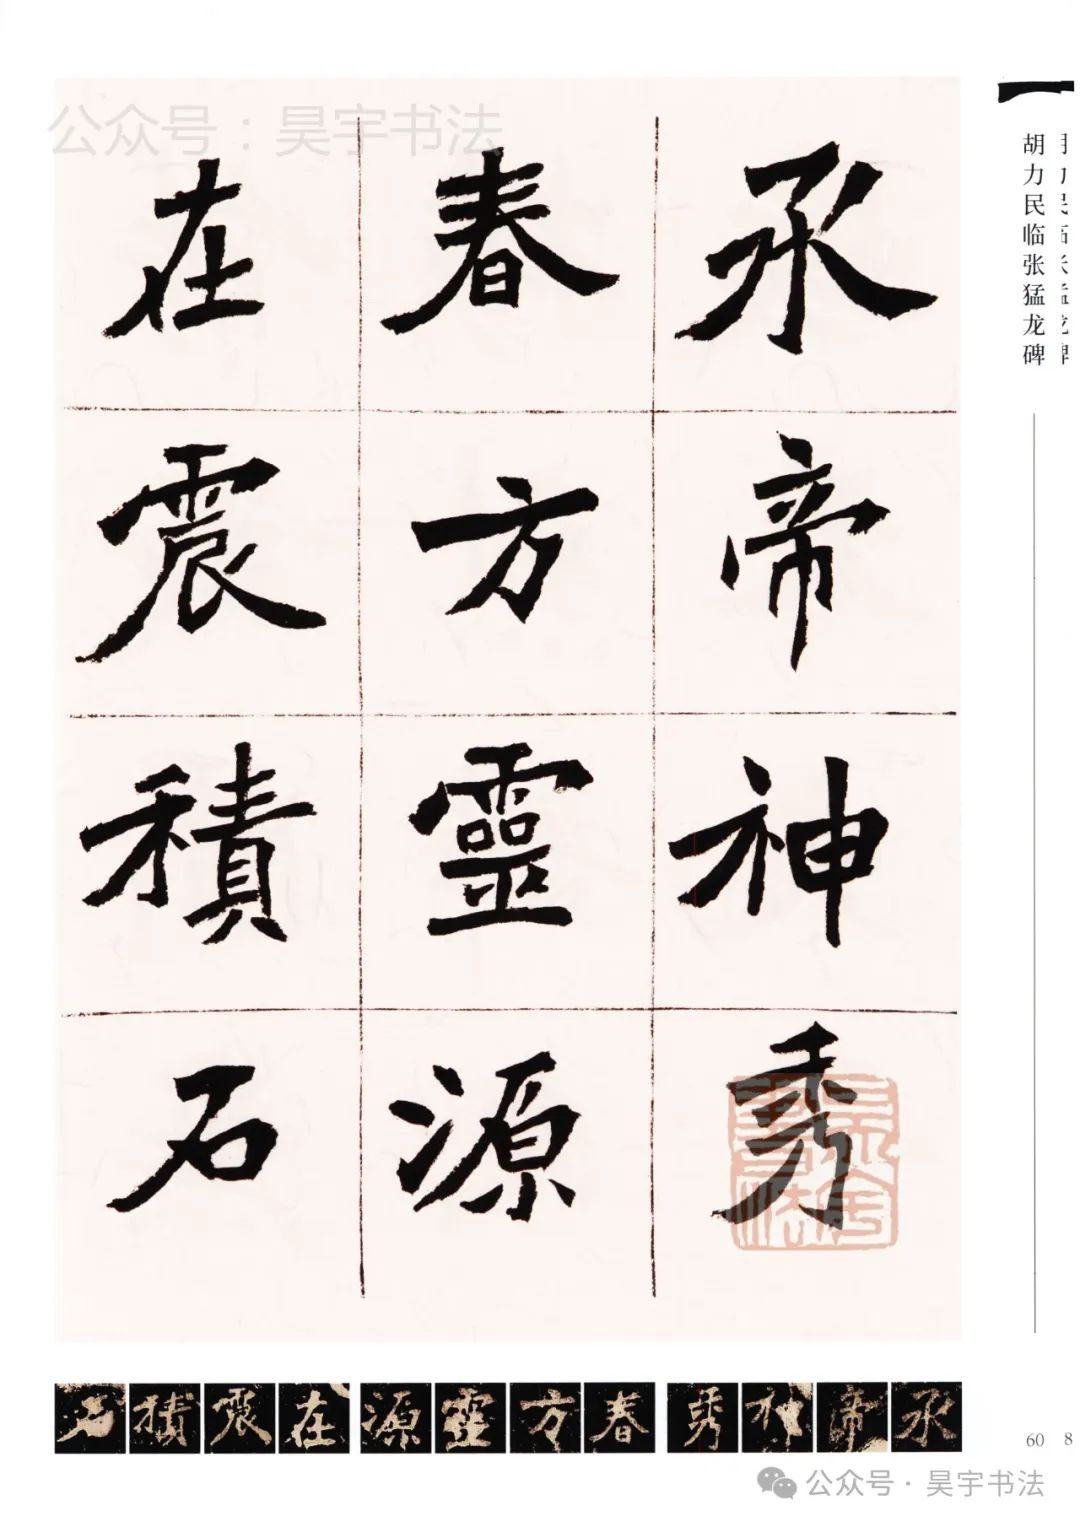 公众号：昊宇书法
承帝神秀
春方靈源
在震積石
胡力民临张猛龙碑
石積震在源靈方春秀神帝承
60
8
公众号·昊宇书法